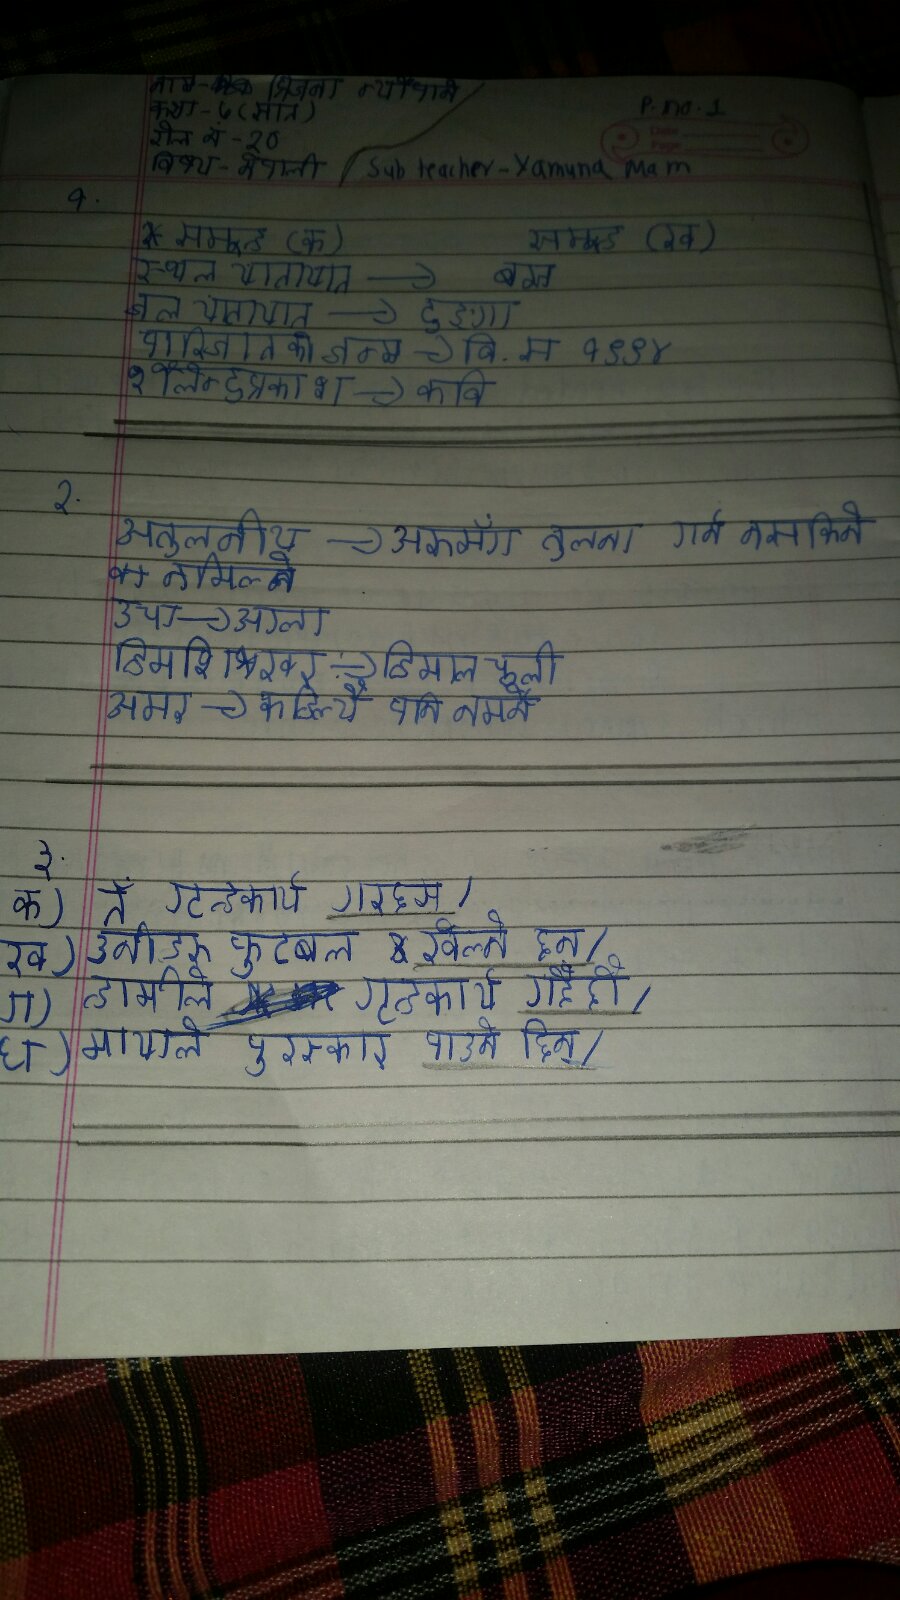 नाम - सिजना न्यौपाने
कक्षा - ७ (सात)
रोल नं - २०
विषय - नेपाली
Sub teacher - Yamuna Mam
P. no. 1
Date
Page
१.
* समूह (क) समूह (ख)
स्थल यातायात → बस
जल यातायात → डुङ्गा
पारिजातको जन्म → वि. स १९९४
शैलेन्द्रप्रकाश → कवि
२.
अतुलनीय → अरूसँग तुलना गर्न नसकिने
नमिल्ने
उषा → आला
हिमशिखर → हिमाल चुली
अमर → कहिल्यै पनि नमर्ने
३.
क) तँ गृहकार्य गरछस।
ख) उनीहरू फुटबल खेल्ने छन्।
ग) हामीले गृहकार्य गर्दैछौ।
घ) मायाले पुरस्कार पाउने छिन्।